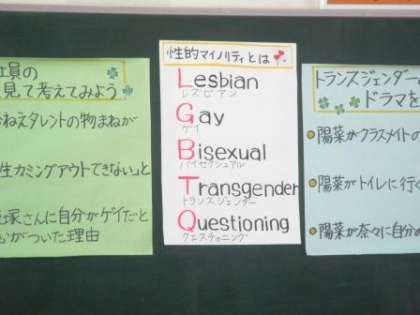 員の
見て考えてみよう
ねえタレントの物まねが
生カミングアウトできない」と
塚さんに自分がゲイだと
がついた理由
性的マイノリティとは
Lesbian
レズビアン
Gay
ゲイ
Bisexual
バイセクシュアル
Transgender
トランスジェンダー
Questioning
クエスチョニング
トランスジェンダー
ドラマを
陽菜がクラスメイトの
陽菜がトイレに行く
陽菜が奈々に自分の